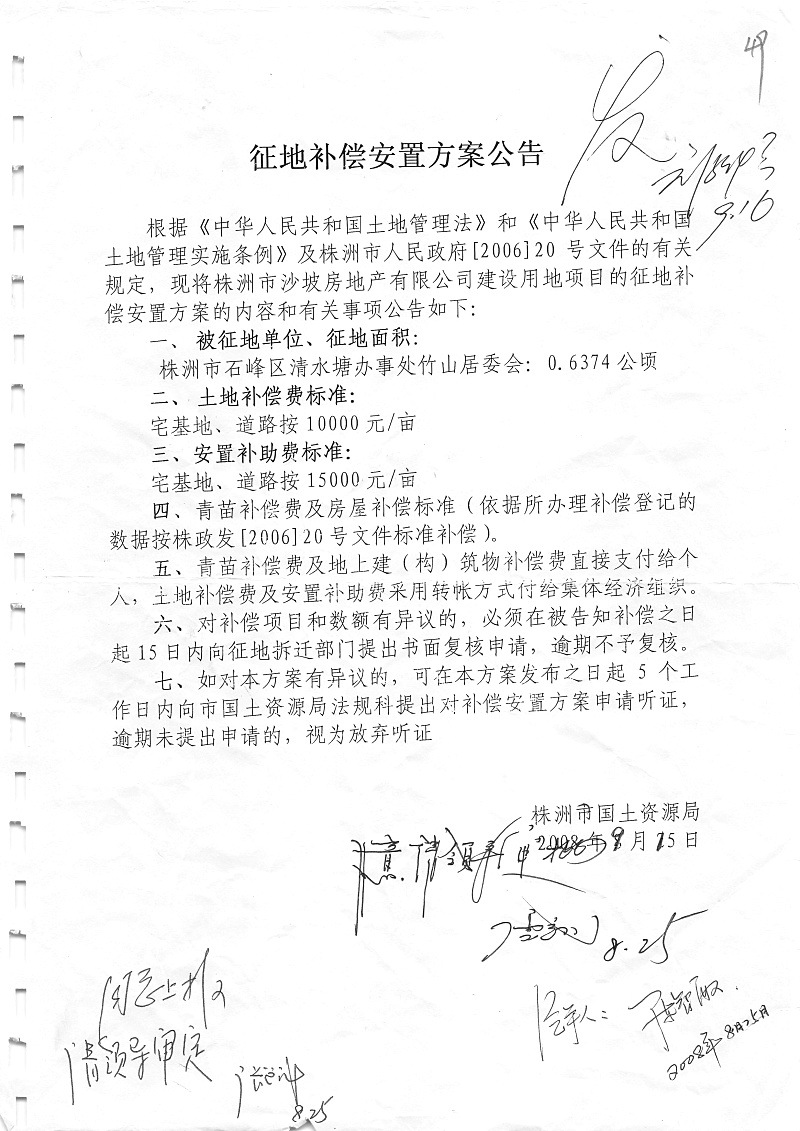 49
发
9.16
征地补偿安置方案公告
根据《中华人民共和国土地管理法》和《中华人民共和国
土地管理实施条例》及株洲市人民政府[2006]20 号文件的有关
规定，现将株洲市沙坡房地产有限公司建设用地项目的征地补
偿安置方案的内容和有关事项公告如下：
一、被征地单位、征地面积：
株洲市石峰区清水塘办事处竹山居委会：0.6374 公顷
二、土地补偿费标准：
宅基地、道路按 10000 元/亩
三、安置补助费标准：
宅基地、道路按 15000 元/亩
四、青苗补偿费及房屋补偿标准（依据所办理补偿登记的
数据按株政发[2006]20 号文件标准补偿）。
五、青苗补偿费及地上建（构）筑物补偿费直接支付给个
人，土地补偿费及安置补助费采用转帐方式付给集体经济组织。
六、对补偿项目和数额有异议的，必须在被告知补偿之日
起 15 日内向征地拆迁部门提出书面复核申请，逾期不予复核。
七、如对本方案有异议的，可在本方案发布之日起 5 个工
作日内向市国土资源局法规科提出对补偿安置方案申请听证，
逾期未提出申请的，视为放弃听证
株洲市国土资源局
2008 年 月 15 日
8.25
同意上报
请领导审定
8.25
2008年8月25日